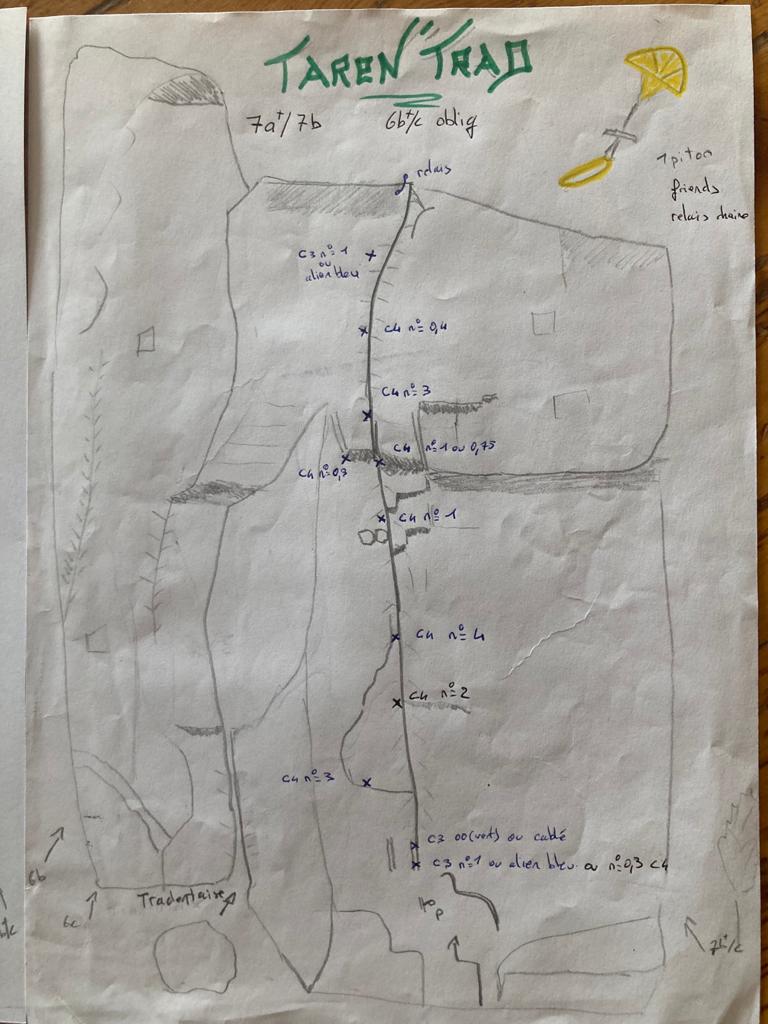 TAREN TRAD
7a+/7b
6b+/c oblig
1 piton
friends
relais chaine
relais
C3 n°=1
ou
alien bleu
C4 n° 0,4
C4 n° 3
C4 n°=1 ou 0,75
C4 n°=0,3
C4 n°=1
C4 n°=4
C4 n°=2
C4 n°=3
C3 00(vert) ou cablé
C3 n°=1 ou alien bleu ou n°=0,3 C4
Tradentaise
6b
6c
P